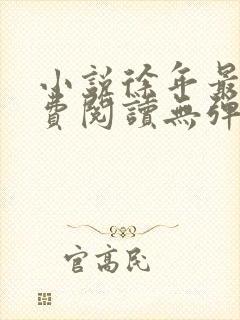 小說徐年最
費閱讀無彈
官高民